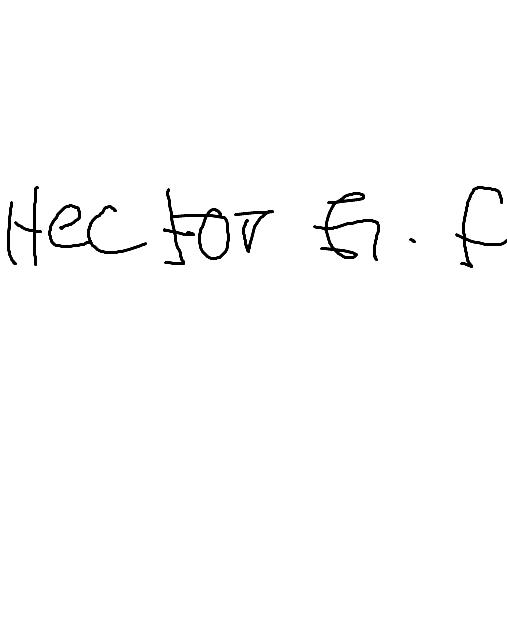 Hector G. f